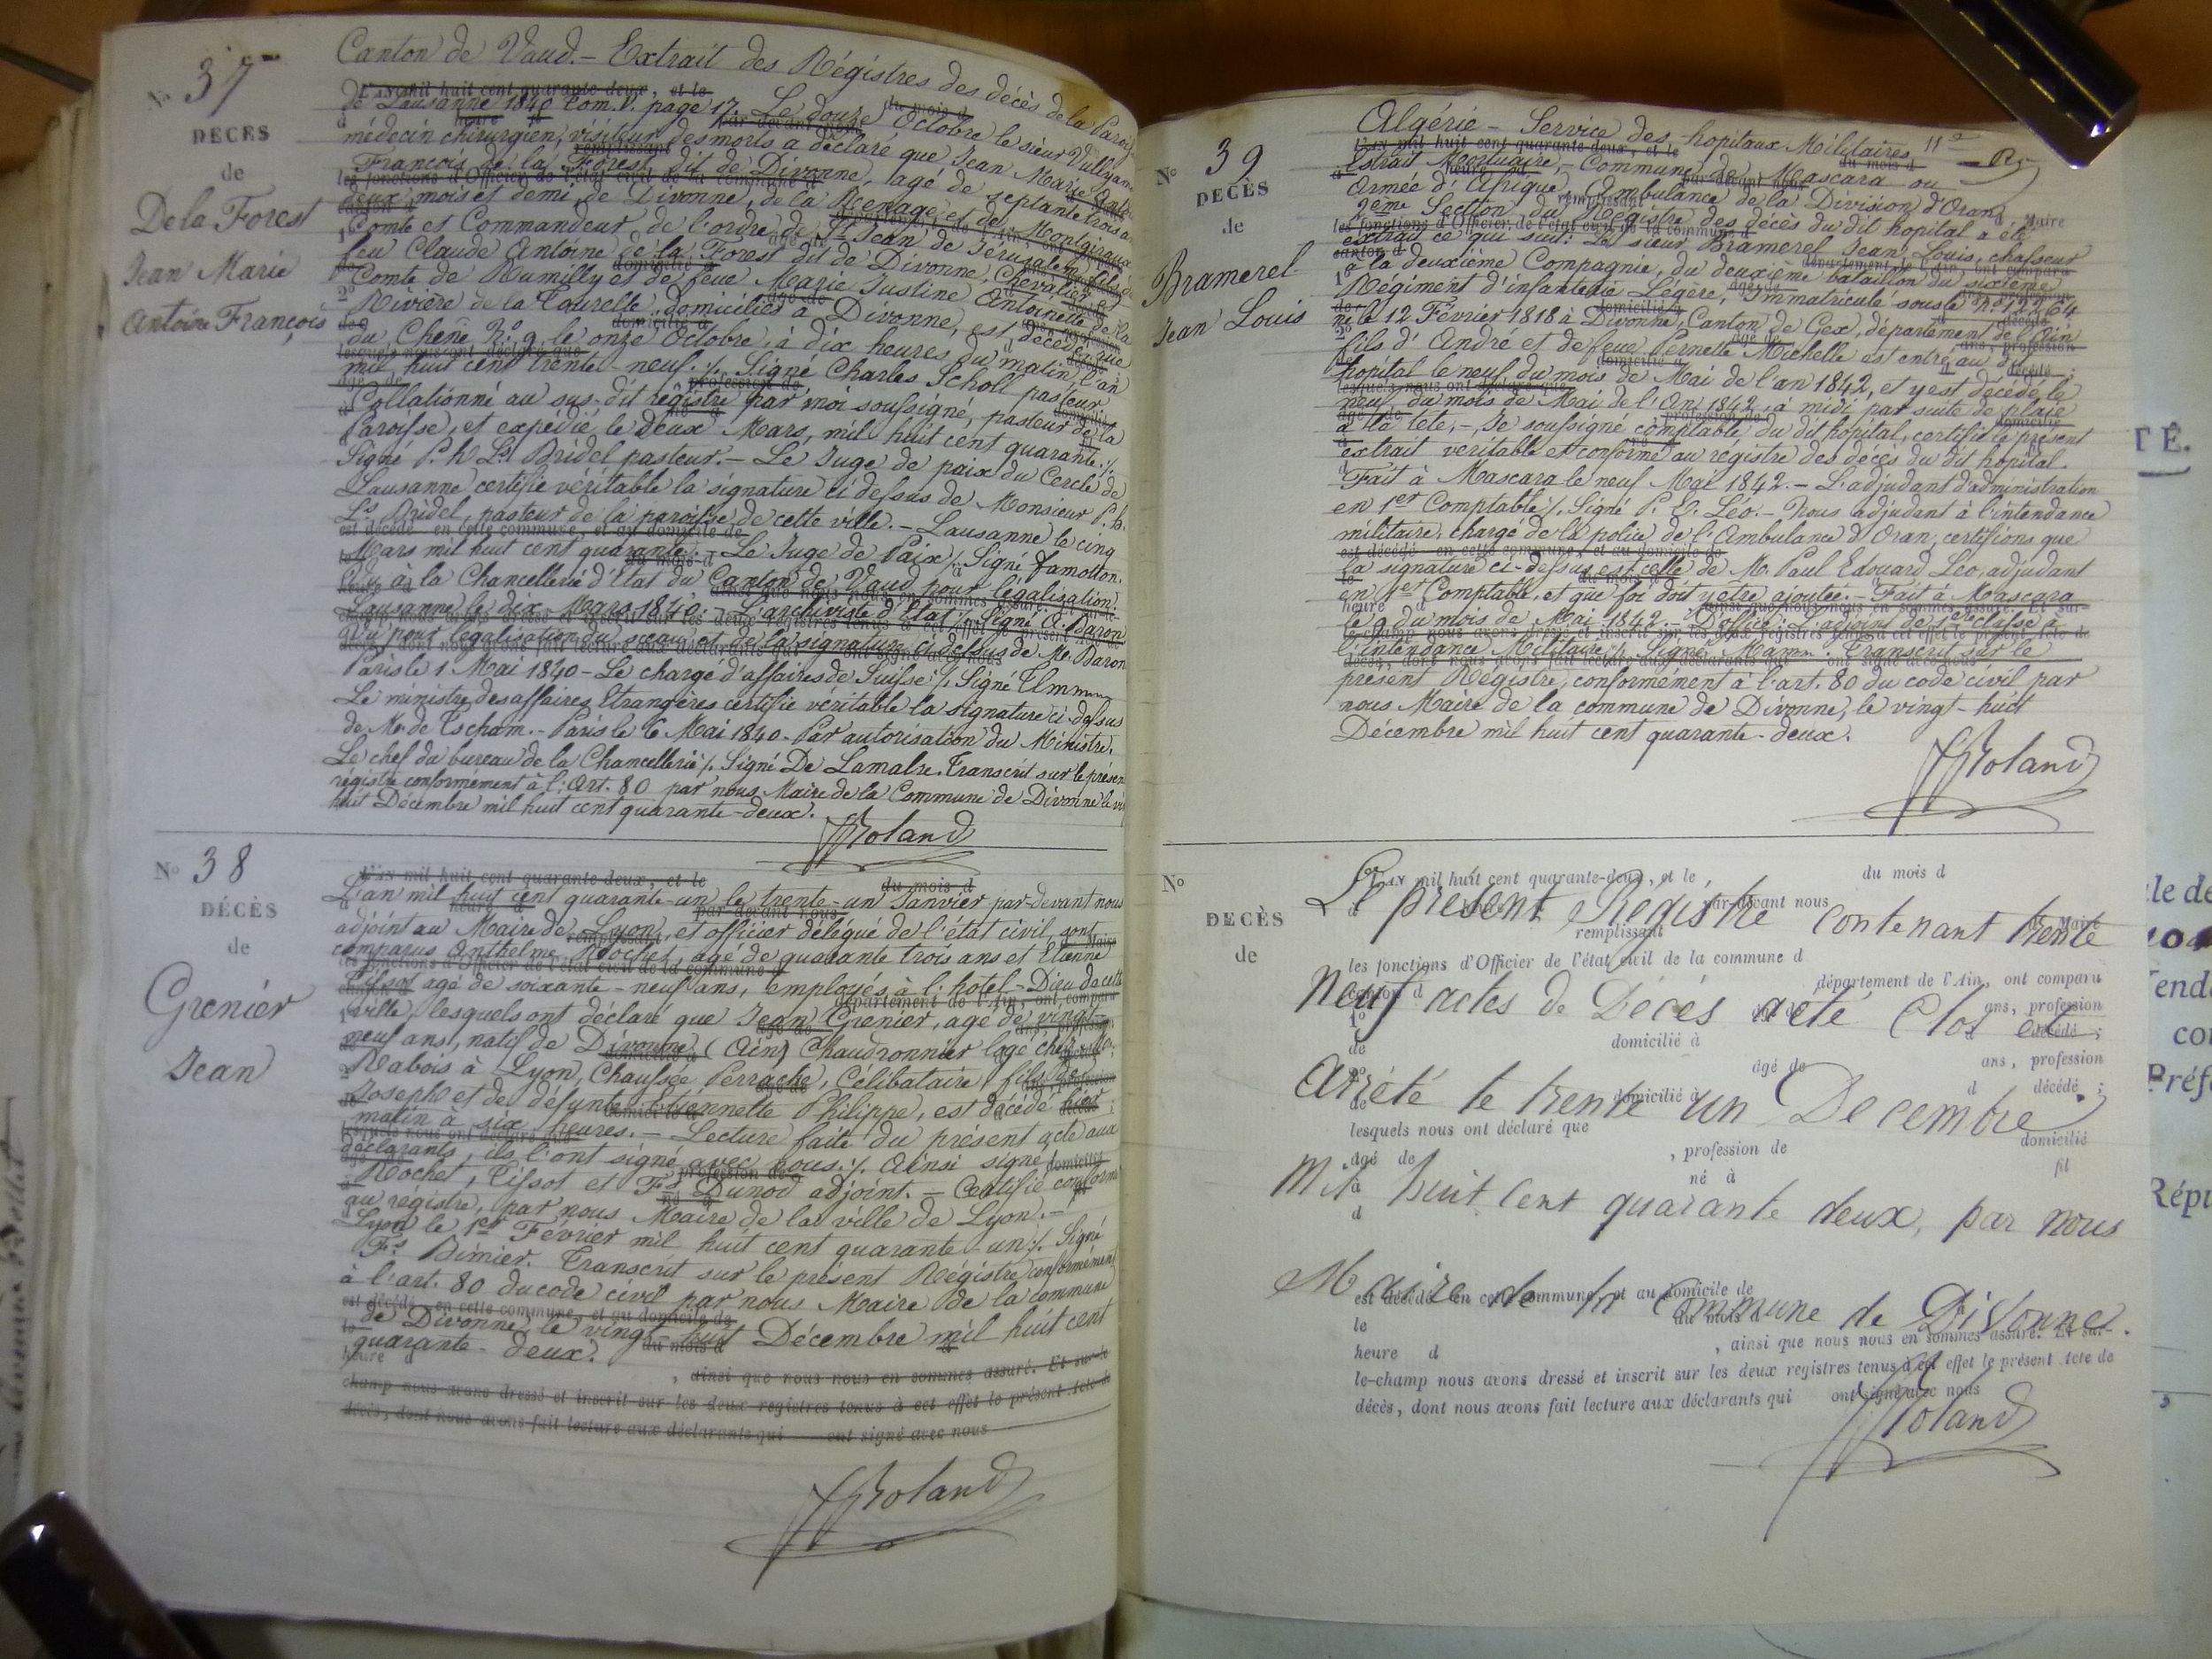 No 37
DÉCÈS
de
De la Forest
Jean Marie
Antoine François
Canton de Vaud. - Extrait des Régistres des décès de la Parois
de Lausanne 1840 Tom. V. page 17. Le douze Octobre le sieur Vulliam
médecin chirurgien, visiteur des morts a déclaré que Jean Marie Antoine
François de la Forest dit de Divonne, agé de septante trois a
deux mois et demi, de Divonne, de la et de
Comte et Commandeur de l'ordre de St Jean de Jérusalem, fils d
feu Claude Antoine de la Forest dit de Divonne, Chevalier
Comte de Rumilly et de feue Marie Justine Antoinette de la
Rivière de la Tourelle, domiciliés à Divonne, est décédé, rue
du Chêne No 9, le onze Octobre, à dix heures du matin, l'an
mil huit cent trente-neuf. /. Signé Charles Scholl pasteur
Collationné au sus-dit régistre par moi soussigné, pasteur de la
Paroisse, et expédié le deux Mars, mil huit cent quarante. /.
Signé P. h Ls Bridel pasteur. - Le Juge de paix du Cercle de
Lausanne certifie véritable la signature ci dessus de Monsieur P. h.
Ls Bridel, pasteur de la paroisse de cette ville. - Lausanne le cinq
Mars mil huit cent quarante. - Le Juge de Paix /. Signé Jamotton.
Vu à la Chancellerie d'Etat du Canton de Vaud pour légalisation.
Lausanne le dix Mars 1840. - L'archiviste d'Etat /. Signé A. Baron
Vu pour légalisation du sceau et de la signature ci dessus de Mr. Baron
Paris le 1 Mai 1840 - Le chargé d'affaires de Suisse: /. Signé
Le ministre des affaires Etrangères certifie véritable la signature ci-dessus
de Mr. de Tscham. - Paris le 6 Mai 1840 - Par autorisation du Ministre.
Le chef du bureau de la Chancellerie /. Signé De Lamalre. Transcrit sur le présen
régistre conformément à l'Art. 80 par nous Maire de la Commune de Divonne le vin
huit Décembre mil huit cent quarante-deux.
Roland
No 38
DÉCÈS
de
Grenier
Jean
L'an mil huit cent quarante-un le trente-un Janvier par-devant nous
adjoint au Maire de Lyon, et officier délégué de l'état civil, sont
comparus Anthelme Rochet, agé de quarante trois ans et Etienne
Tissot agé de soixante-neuf ans, employés à l'hôtel-Dieu de cette
ville, lesquels ont déclaré que Jean Grenier, agé de vingt-
neuf ans, natif de Divonne (Ain) Chaudronnier logé chez Mr.
Rabois à Lyon, Chaussée Perrache, Célibataire, fils de
Joseph et de défunte Etiennette Philippe, est décédé hier
matin à six heures. - Lecture faite du présent acte aux
déclarants, ils l'ont signé avec nous. /. Ainsi signé
Rochet, Tissot et Fs Dunod adjoint. - Certifié conforme
au registre, par nous Maire de la ville de Lyon. -
Lyon le 1er Février mil huit cent quarante-un /. Signé
Fs Bimier. Transcrit sur le présent Régistre conformément
à l'art. 80 du code civil par nous Maire de la commune
de Divonne, le vingt-huit Décembre mil huit cent
quarante-deux.
, ainsi que nous nous en sommes assuré. Et sur-le
champ nous avons dressé et inscrit sur les deux registres tenus à cet effet le présent Acte de
décès, dont nous avons fait lecture aux déclarants qui ont signé avec nous
Roland
No 39
DÉCÈS
de
Bramerel
Jean Louis
Algérie - Service des hopitaux Militaires
Extrait Mortuaire, - Commune de Mascara ou
Armée d'Afrique, Ambulance de la Division d'Oran
2ème Section du Registre des décès du dit hopital a été
extrait ce qui suit: Le sieur Bramerel Jean Louis, chasseur
à la deuxième Compagnie, du deuxième bataillon du sixième
Régiment d'infanterie Légère, Immatriculé sous le No 12264
né le 12 Février 1818 à Divonne, Canton de Gex, département de l'Ain
fils d'André et de feue Pernette Michelle est entré au dit
hôpital le neuf du mois de Mai de l'an 1842, et y est décédé le
neuf du mois de Mai de l'An 1842, à midi par suite de plaie
à la tête, - Je soussigné comptable du dit hopital, certifie le présent
extrait véritable et conforme au registre des décès du dit hopital.
Fait à Mascara le neuf Mai 1842. - L'adjudant d'administration
en 1er Comptable /. Signé P. E. Léo. - Nous adjudant à l'intendance
militaire, chargé de la police de l'Ambulance d'Oran, certifions que
la signature ci-dessus est celle de Mr. Paul Edouard Léo, adjudant
en 1er Comptable, et que foi doit y être ajoutée. - Fait à Mascara
le 9 du mois de Mai 1842. - D'office: L'adjoint de 1ère classe à
l'intendance Militaire /. Signé Transcrit sur le
présent Régistre, conformément à l'art. 80 du code civil par
nous Maire de la commune de Divonne, le vingt-huit
Décembre mil huit cent quarante-deux.
Roland
No
DÉCÈS
de
L'AN mil huit cent quarante-deux, et le , du mois d
par-devant nous
Le présent Régistre contenant trente
remplissant
les fonctions d'Officier de l'état civil de la commune d
département de l'Ain, ont comparu
Neuf actes de Décès a été Clos et
domicilié à
arrêté le trente un Decembre
lesquels nous ont déclaré que domicilié
agé de , profession de
né à
Mil huit Cent quarante deux, par nous
Maire de la Commune de Divonne.
est décédé en cette commune, et au domicile de
le du mois d
heure d , ainsi que nous nous en sommes assuré. Et sur-
le-champ nous avons dressé et inscrit sur les deux registres tenus à cet effet le présent Acte de
décès, dont nous avons fait lecture aux déclarants qui ont signé avec nous
Roland